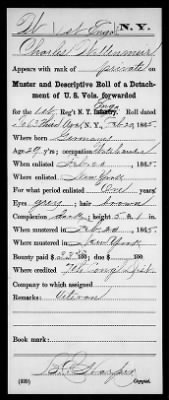 W 1st Engrs N.Y.
Charles Willenmeir
Appears with rank of private on
Muster and Descriptive Roll of a Detach-
ment of U. S. Vols. forwarded
Engs
for the 1st Reg't N.Y. Infantry. Roll dated
N. Y., Feb 20, 1865.
Where born Germany
Age 29 y'rs; occupation
When enlisted Feb 20, 1865.
Where enlisted New York
For what period enlisted One years.
Eyes grey; hair brown
Complexion dark; height 5 ft. 1 in.
When mustered in Feb 20, 1865.
Where mustered in New York
Bounty paid $33 100; due $ 100
Where credited 7th Cong Dist.
Company to which assigned
Remarks: Veteran
(339) Copyist.